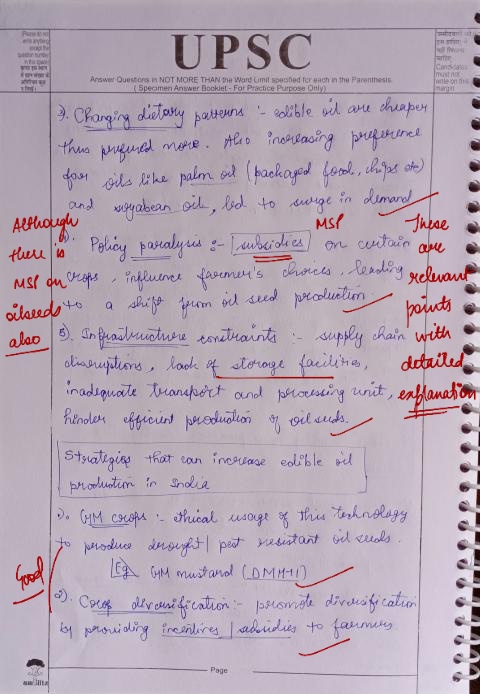 UPSC
Answer Questions in NOT MORE THAN the Word Limit specified for each in the Parenthesis.
( Specimen Answer Booklet - For Practice Purpose Only)
(Please do not
write anything
except the
question number
in this space)
Candidates
must not
write on this
margin
3). Changing dietary patterns :- edible oil are cheaper
thus preferred more. Also increasing preference
for oils like palm oil (packaged food, chips etc)
and soyabean oil, led to surge in demand
MSP
4). Policy paralysis :- subsidies on certain
crops, influence farmer's choices, leading
to a shift from oil seed production.
5). Infrastructure constraints :- supply chain
disruptions, lack of storage facilities,
inadequate transport and processing unit,
hinder efficient production of oil seeds.
Although
there is
MSP on
oilseeds
also
These
are
relevant
points
with
detailed
explanation
Strategies that can increase edible oil
production in India
1). GM crops :- ethical usage of this technology
to produce drought / pest resistant oil seeds.
Eg GM mustard (DMH-11)
Good
2). Crop diversification :- promote diversification
by providing incentives / subsidies to farmers
Page